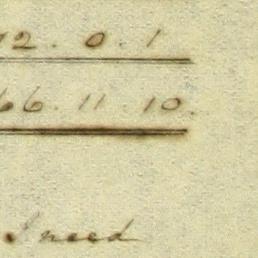 12 . 0 . 1
66 . 11 . 10
Sneed